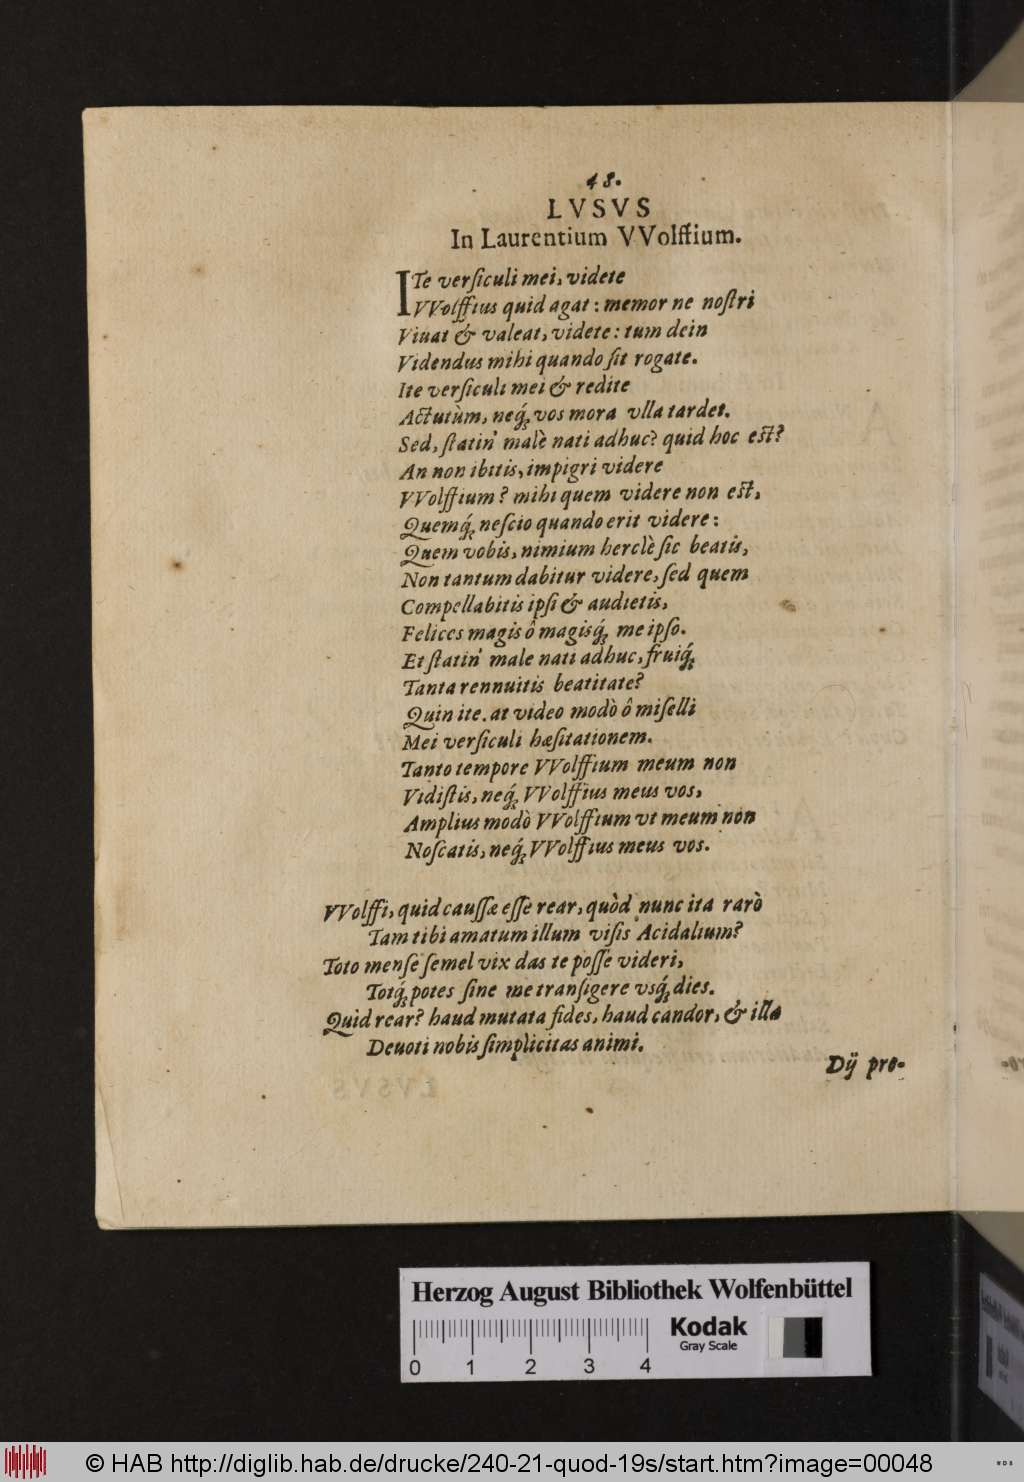 48.
LVSVS
In Laurentium VVolffium.
ITe verſiculi mei, videte
VVolffius quid agat: memor ne noſtri
Viuat & valeat, videte: tum dein
Videndus mihi quando ſit rogate.
Ite verſiculi mei & redite
Actutùm, neq́; vos mora vlla tardet.
Sed, ſtatin' malè nati adhuc? quid hoc eſt?
An non ibitis, impigri videre
VVolffium? mihi quem videre non eſt,
Quemq́; neſcio quando erit videre:
Quem vobis, nimium herclè ſic beatis,
Non tantum dabitur videre, ſed quem
Compellabitis ipſi & audietis,
Felices magis ô magisq́; me ipſo.
Et ſtatin' male nati adhuc, fruiq́;
Tanta rennuitis beatitate?
Quin ite. at video modò ô miſelli
Mei verſiculi hæſitationem.
Tanto tempore VVolffium meum non
Vidiſtis, neq́; VVolffius meus vos,
Amplius modò VVolffium vt meum non
Noſcatis, neq́; VVolffius meus vos.
VVolffi, quid cauſſæ eſſe rear, quòd nunc ita rarò
Tam tibi amatum illum viſis Acidalium?
Toto menſe ſemel vix das te poſſe videri,
Totq́; potes ſine me tranſigere vsq́; dies.
Quid rear? haud mutata fides, haud candor, & illa
Deuoti nobis ſimplicitas animi.
Dij pro-
Herzog August Bibliothek Wolfenbüttel
Kodak
Gray Scale
0 1 2 3 4
© HAB http://diglib.hab.de/drucke/240-21-quod-19s/start.htm?image=00048